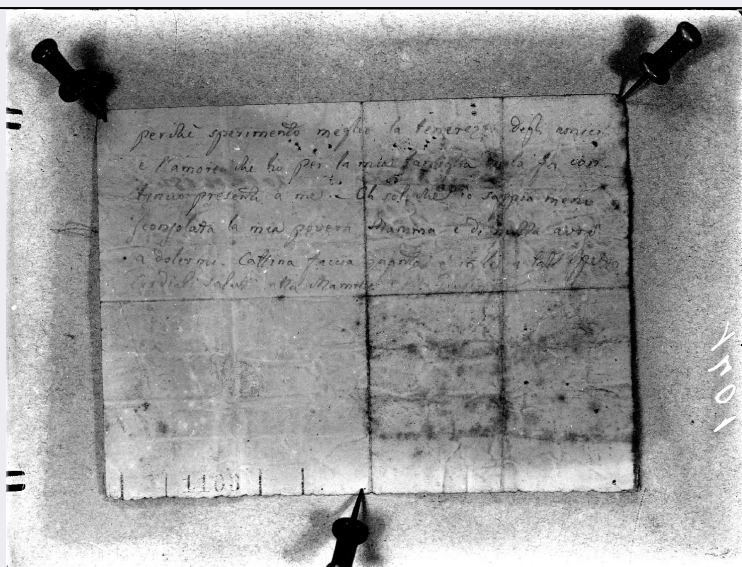 perchè sperimento meglio la tenerezza degli amici
e l'amore che ho per la mia famiglia me la fa con-
tinuo presente a me. Oh solo che io sappia meno
sconsolata la mia povera Mamma e di nulla avrò
a dolermi. Cattina faccia a lei e a tutti
Cordiali saluti alla Mamma
1103
1071